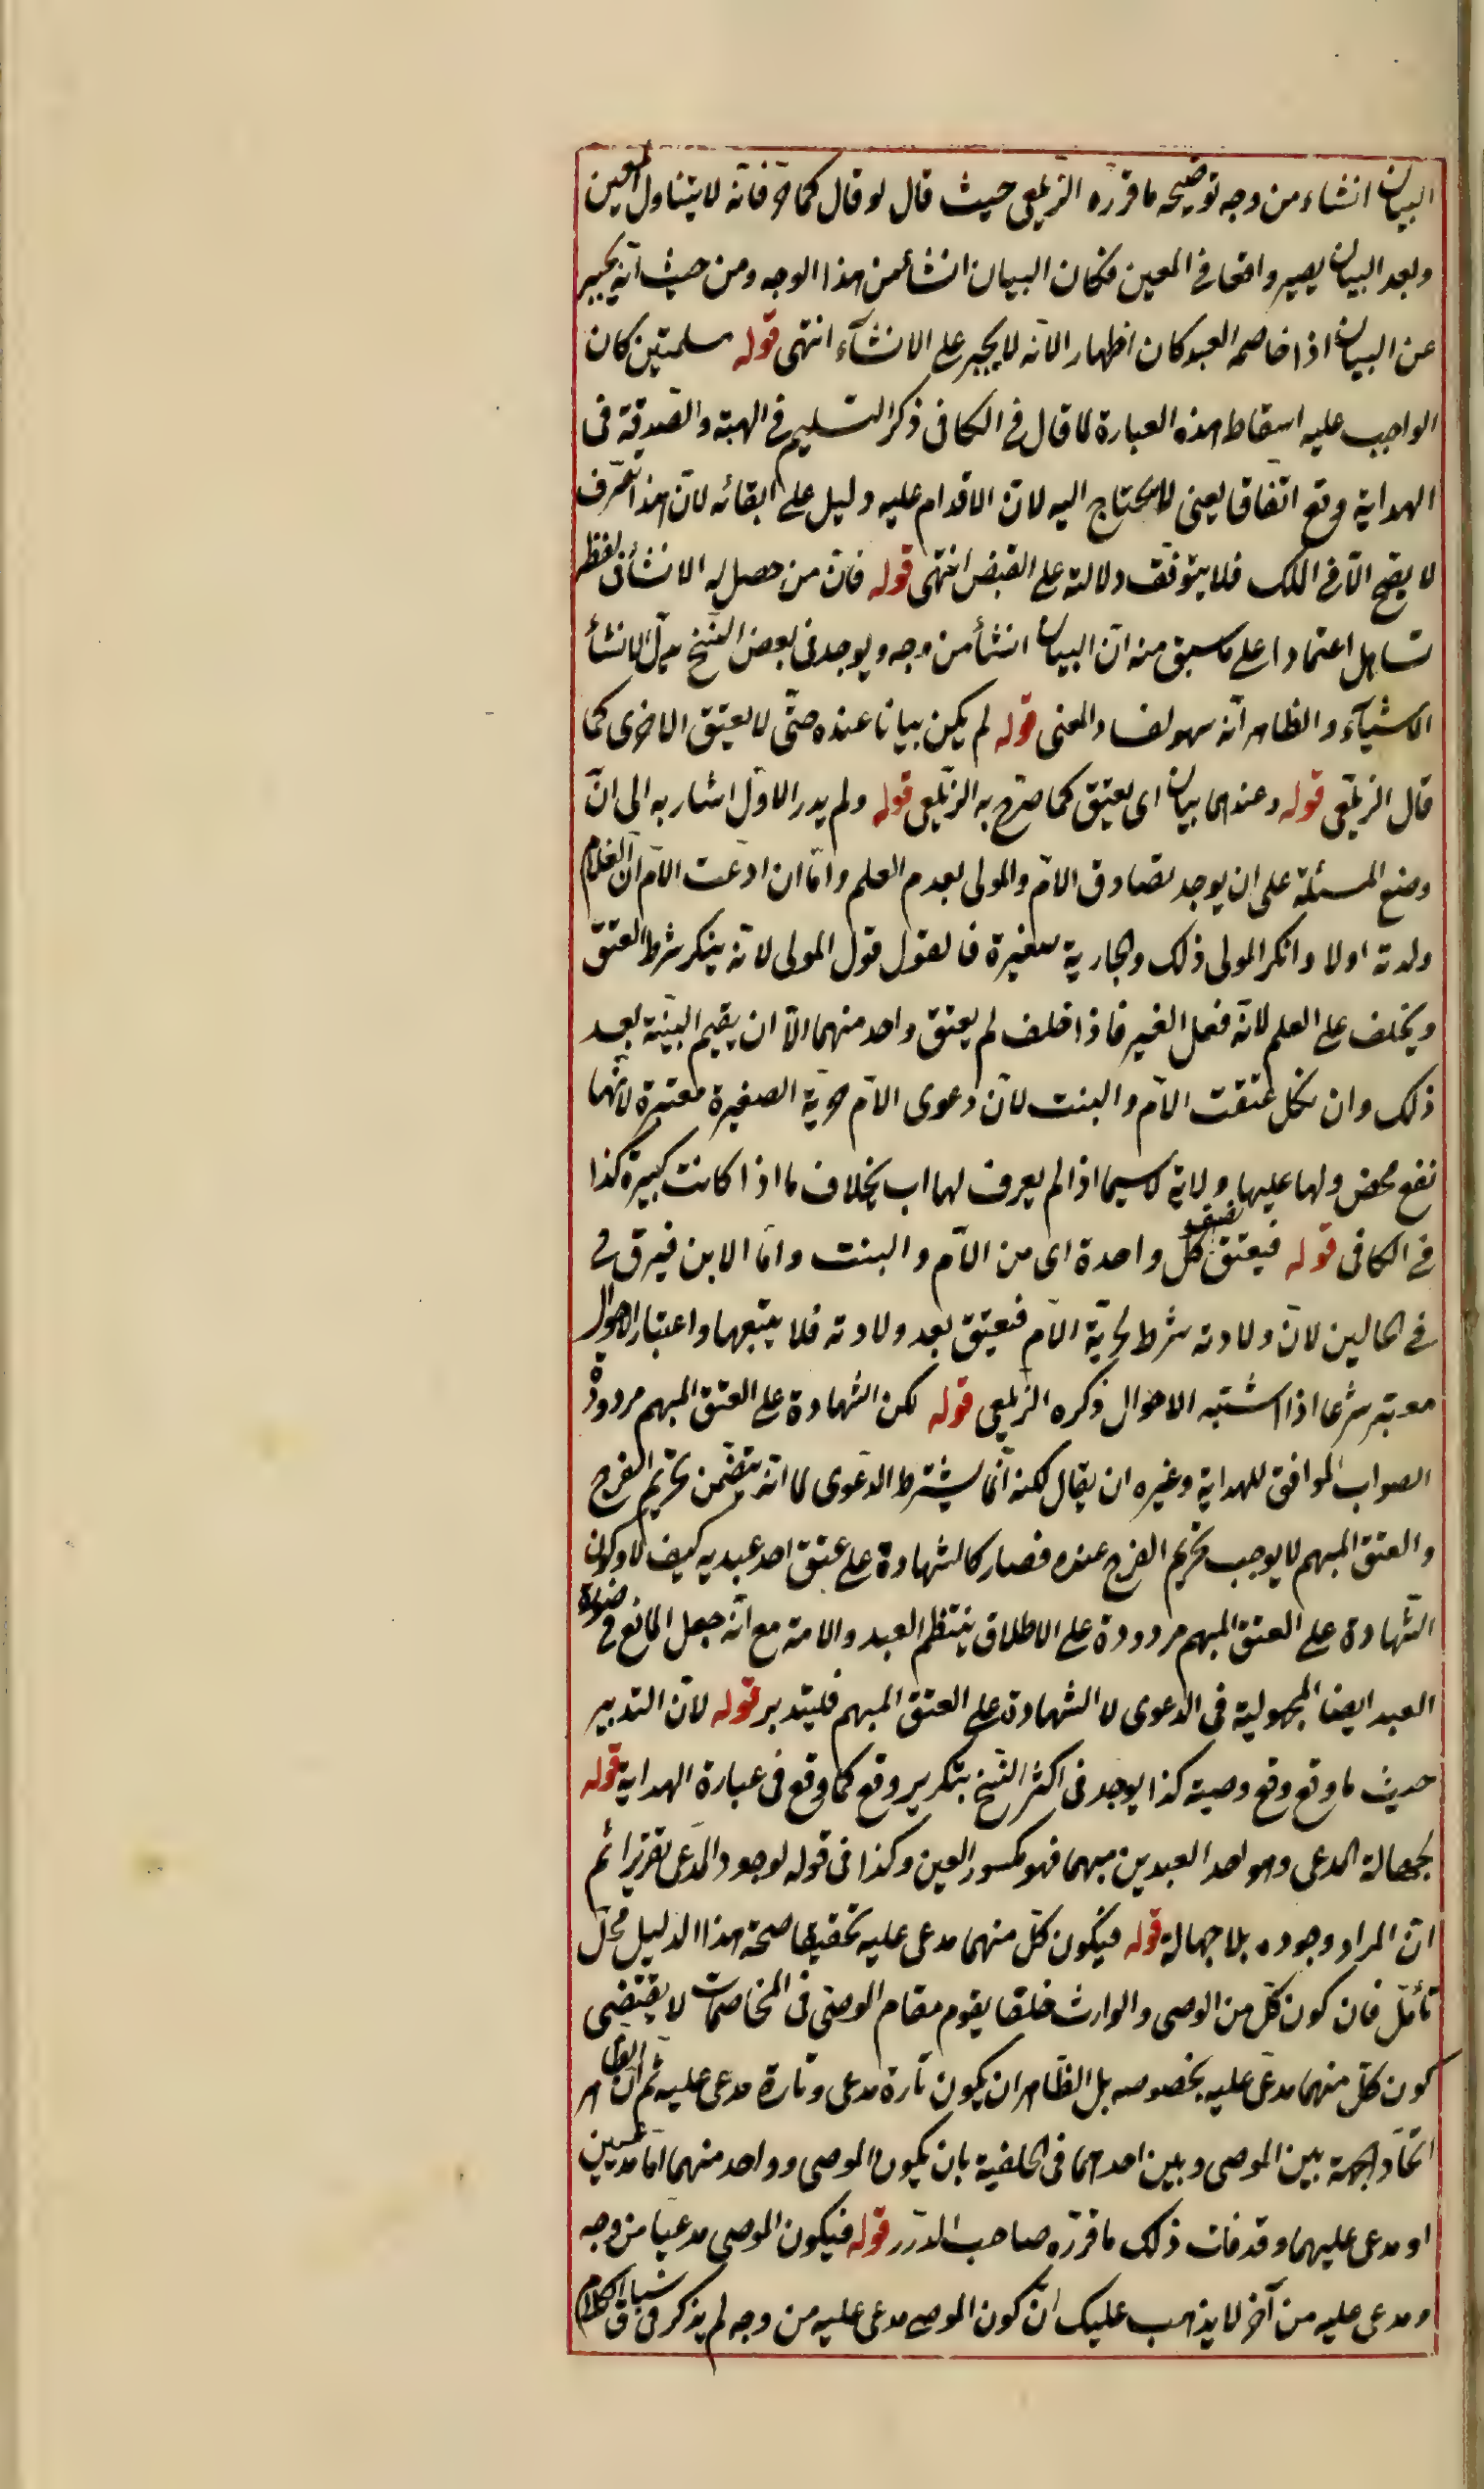 البيان انشاء من وجه توضيحه ما قرره الزيلعى حيث قال لو قال كما مر فانه لا يتناول المعين
وبعد البيان يصير واقعا فى المعين فكان البيان انشأ من هذا الوجه ومن حيث انه يجبر
عن البيان اذا خاصمه العبد كان اظهار الانه لا يجبر على الانشآء انتهى قوله مسلمتين كان
الواجب عليه اسقاط هذه العبارة لما قال فى الكافى ذكر التسليم فى الهبة والصدقة فى
الهداية وقع اتفاقا يعنى لا يحتاج اليه لان الاقدام عليه دليل على ابقائه لان هذا تصرف
لا يصح الا فى الملك فلا يتوقف دلالته على القبض انتهى قوله فان من حصل له الانشأن لفظ
تساهل اعتمادا على ما سبق منه ان البيان انشأ من وجه ويوجد فى بعض النسخ بدل الانشأ
الاشيآء والظاهر انه سهو لفساد المعنى قوله لم يكن بيانا عنده حتى لا يعتق الاخرى كما
قال الزيلعى قوله وعندهما بيان اى يعتق كما صرح به الزيلعى قوله ولم يدر الاول اشار به الى ان
وضع المسئلة على ان يوجد تصادق الام والمولى بعدم العلم واما ان ادعت الام ان الغلام
ولدته اولا وانكر المولى ذلك والجارية صغيرة فالقول قول المولى لانه ينكر شرط العتق
ويحلف على العلم لانه فعل الغير فاذا حلف لم يعتق واحد منهما الا ان يقيم البينة بعد
ذلك وان نكل عتقت الام والبنت لان دعوى الام حرية الصغيرة معتبرة لانها
نفع محض ولها عليها ولاية لا سيما اذا لم يعرف لها اب بخلاف ما اذا كانت كبيرة كذا
فى الكافى قوله فيعتق نصف كل واحدة اى من الام والبنت واما الابن فيرق فى
فى الحالين لان ولادته شرط لحرية الام فتعتق بعد ولادته فلا يتبعها واعتبار الاحوال
معتبر شرعا اذا اشتبه الاحوال ذكره الزيلعى قوله لكن الشهادة على العتق المبهم مردودة
الصواب الموافق للهداية وغيره ان يقال لكنه انما يشترط الدعوى لما انه يتضمن تحريم الفرج
والعتق المبهم لا يوجب تحريم الفرج عنده فصار كالشهادة على عتق احد عبديه كيف لا وكون
الشهادة على العتق المبهم مردودة على الاطلاق ينتظم العبد والامة مع انه جعل المانع فى صورة
العبد ايضا المجهولية فى الدعوى لا الشهادة على العتق المبهم فليتدبر قوله لان التدبير
حديث ما وقع وقع وصية كذا يوجد فى اكثر النسخ بتكرير وقع كما وقع فى عبارة الهداية قوله
لجهالة المدعى وهو احد العبدين مبهما فهو مكسور العين وكذا فى قوله لوجود المدعى تقريرا ثم
ان المراد وجوده بلا جهالة قوله فيكون كل منهما مدعى عليه تحقيقا صحة هذا الدليل محل
تأمل فان كون كل من الوصى والوارث خلفا يقوم مقام الموصى فى المخاصمات لا يقتضى
كون كل منهما مدعى عليه بخصوصه بل الظاهر ان يكون تارة مدعى وتارة مدعى عليه ثم ان الظاهر
اتحاد الجهة بين الموصى وبين احدهما فى الخلفية بان يكون الموصى وواحد منهما اما مدعيين
او مدعى عليهما وقد فات ذلك ما قرره صاحب الدرر قوله فيكون الموصى مدعيا من وجه
ومدعى عليه من آخر لا يذهب عليك ان كون الموصى مدعى عليه من وجه لم يذكر فى سباق الكلام